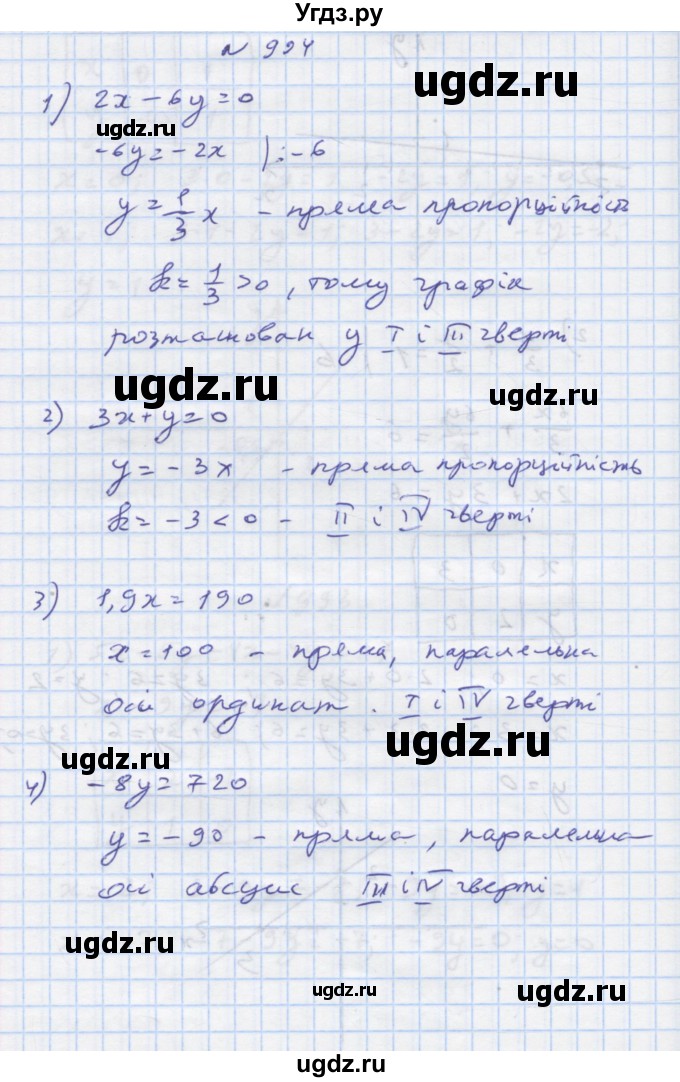 Угдз.ру
N 994
ugdz.ru
1) 2x - 6y = 0
ugdz.ru
-6y = -2x | : -6
y = 1/3 x - пряма пропорційність
k = 1/3 > 0, тому графік
розташован у I і III чверті
ugdz.ru
ugdz.ru
2) 3x + y = 0
y = -3x - пряма пропорційність
k = -3 < 0 - II і IV чверті
3) 1,9x = 190
x = 100 - пряма, паралельна
осі ординат. I і IV чверті
ugdz.ru
ugdz.ru
4) -8y = 720
y = -90 - пряма, паралельна
осі абсцис III і IV чверті
ugdz.ru
ugdz.ru
ugdz.ru
ugdz.ru